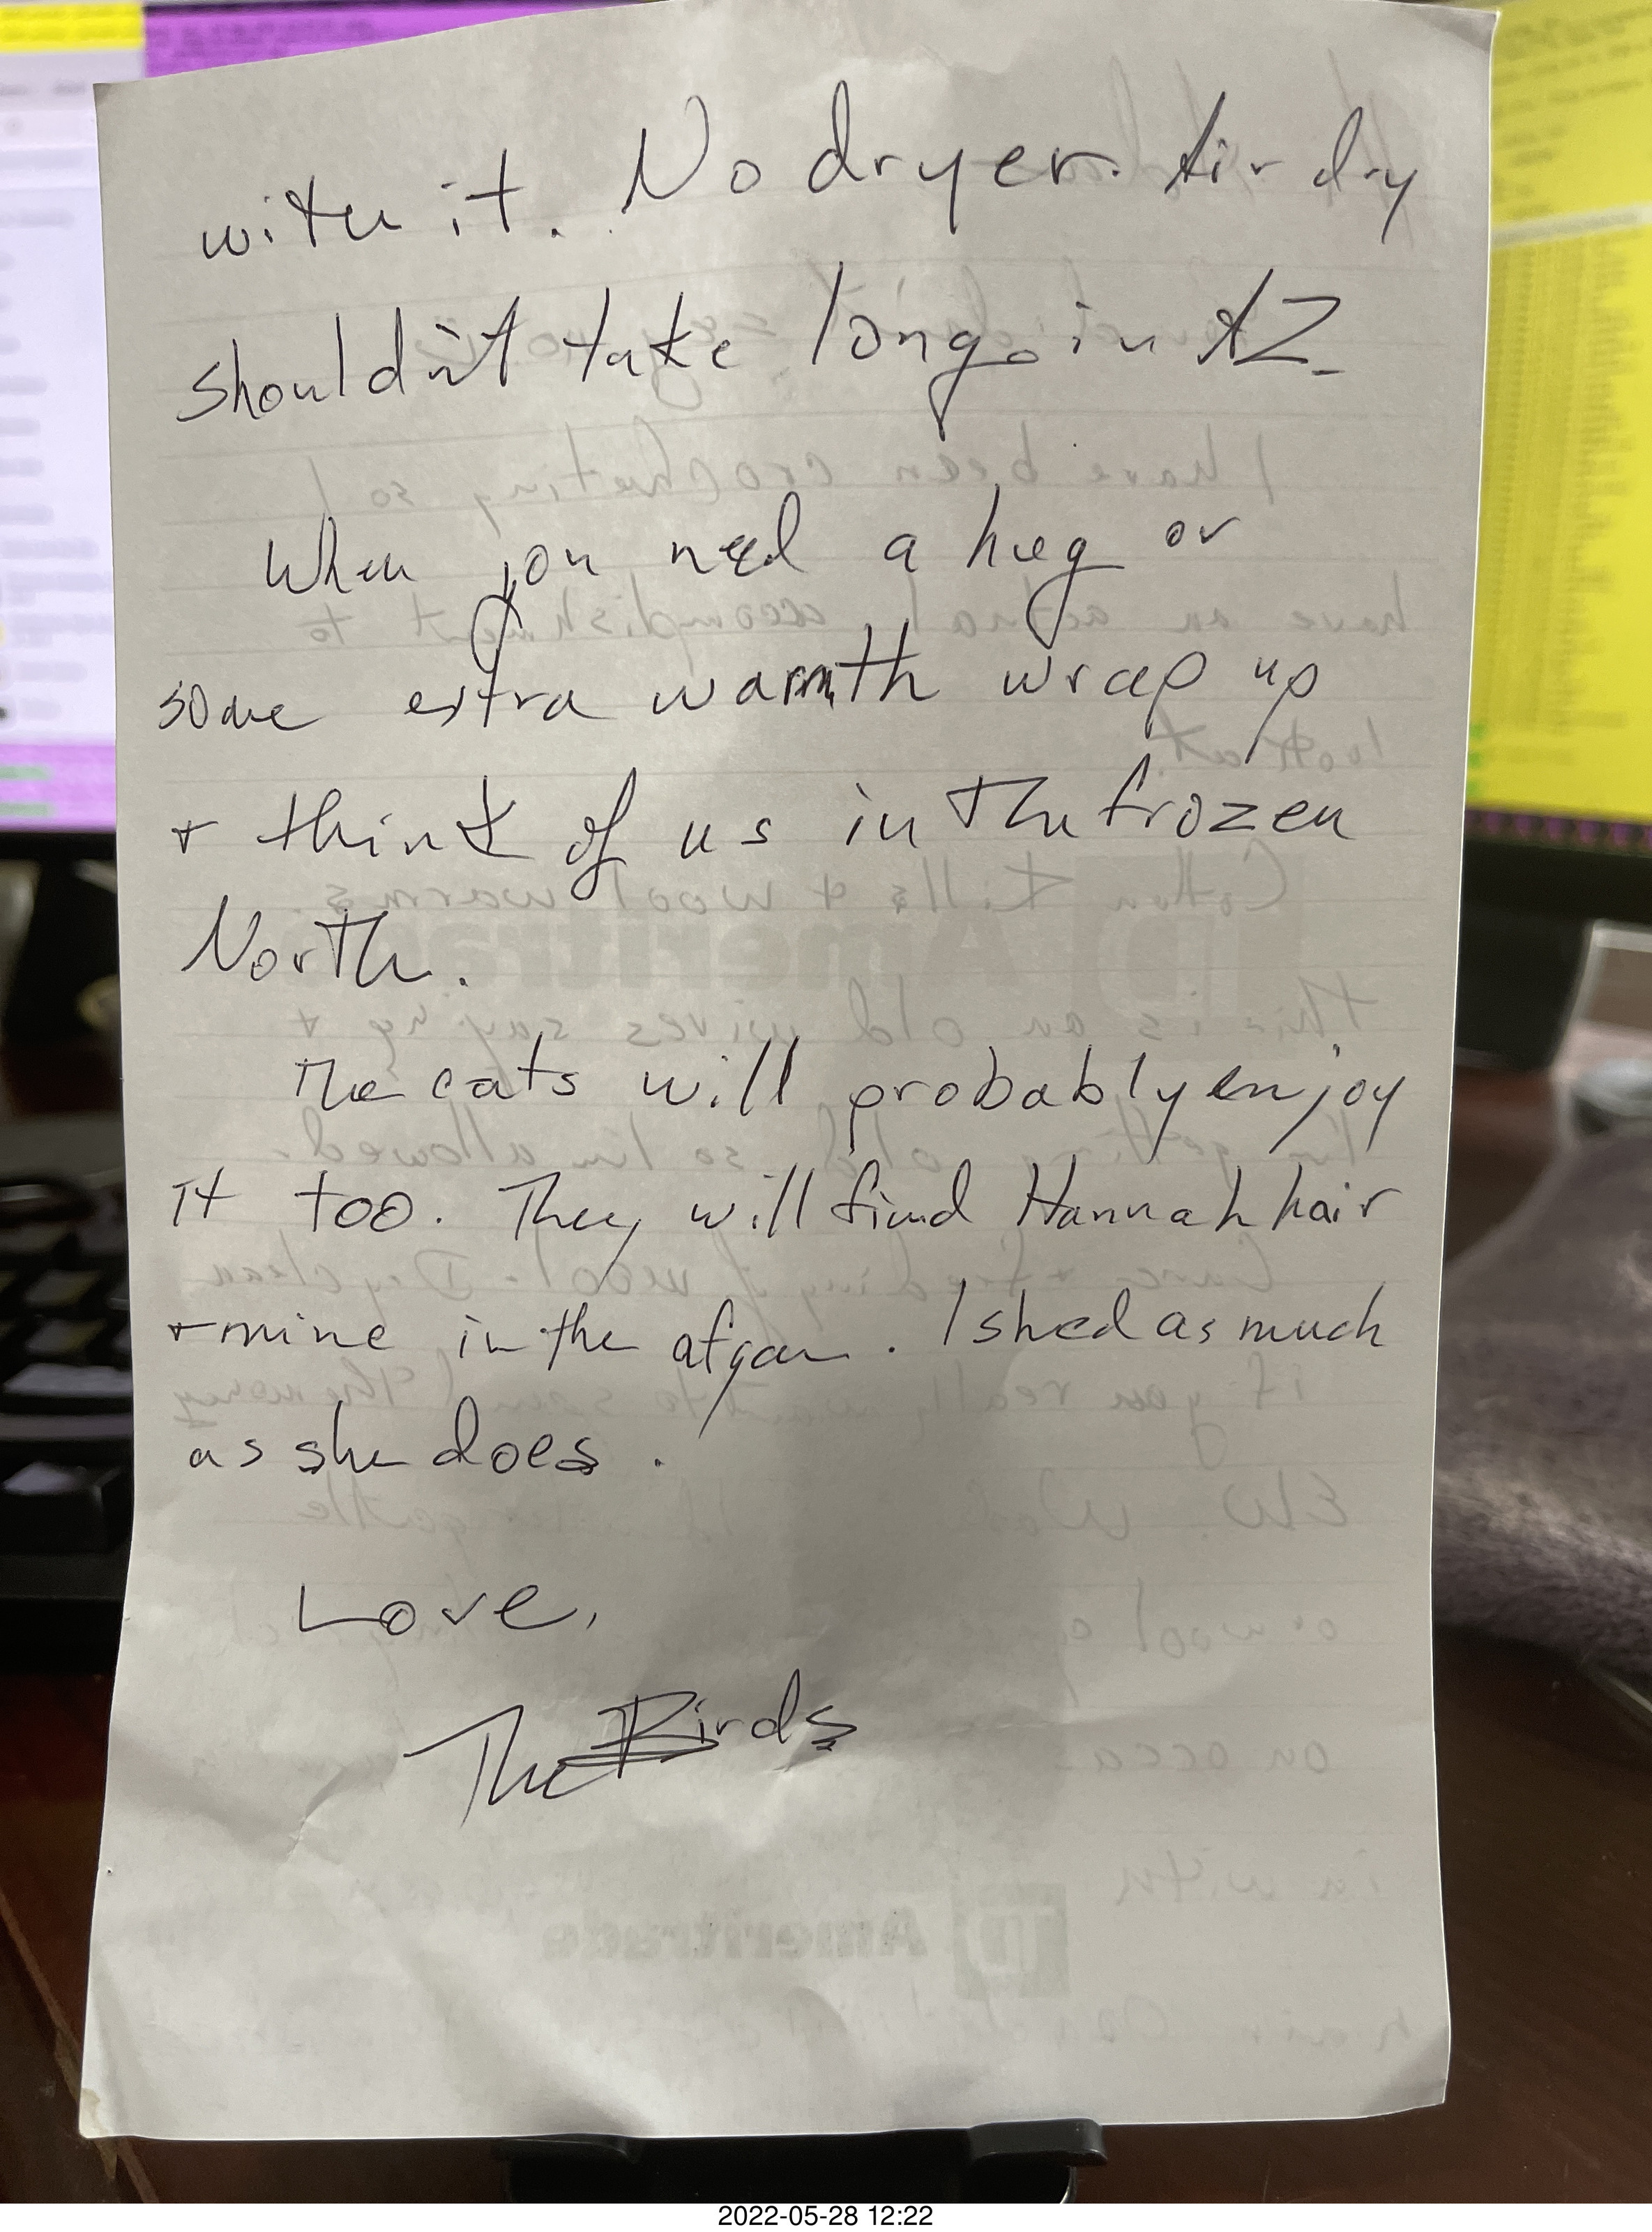 with it. No dryer. Air dry
shouldn't take long in AZ.
When you need a hug or
some extra warmth wrap up
+ think of us in the frozen
North.
The cats will probably enjoy
it too. They will find Hannah hair
+ mine in the afgan. I shed as much
as she does.
Love,
The Birds
2022-05-28 12:22